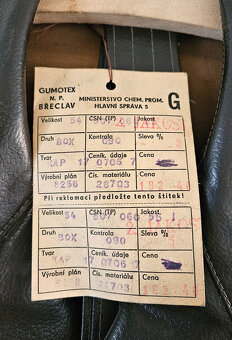 GUMOTEX
N. P.
BŘECLAV
MINISTERSTVO CHEM. PROM.
HLAVNÍ SPRÁVA 5
G
Velikost 54 ČSN (TP) Jakost
Druh BOX Kontrola 090 Sleva %
Tvar KAP Ceník. údaje 17 0706 7 Cena
Výrobní plán 8256 Čís. materiálu 28703 Cena
Při reklamaci předložte tento štítek!
Velikost 54 ČSN (TP) Jakost
Druh BOX Kontrola 090 Sleva %
Tvar KAP Ceník. údaje 17 0706 7 Cena
Výrobní plán Čís. materiálu 28703 Cena